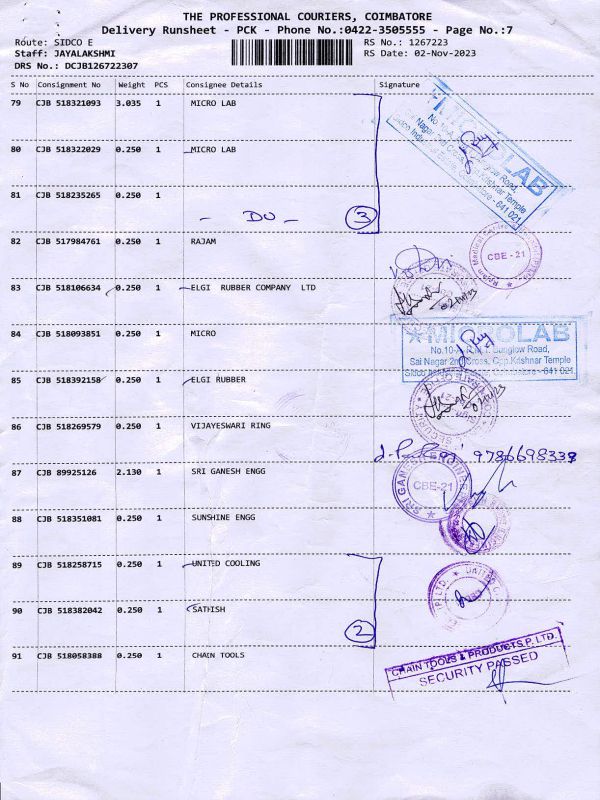 THE PROFESSIONAL COURIERS, COIMBATORE
Delivery Runsheet - PCK - Phone No.:0422-3505555 - Page No.:7
Route: SIDCO E
RS No.: 1267223
Staff: JAYALAKSHMI
RS Date: 02-Nov-2023
DRS No.: DCJB126722307
S No Consignment No Weight PCS Consignee Details Signature
79 CJB 518321093 3.035 1 MICRO LAB
80 CJB 518322029 0.250 1 MICRO LAB
MICROLAB
Sai Nagar 2nd Cross, Opp.Krishnar Temple
Sidco Industrial Estate, Coimbatore - 641 021.
81 CJB 518235265 0.250 1
- DO - 3
82 CJB 517984761 0.250 1 RAJAM
CBE - 21
83 CJB 518106634 0.250 1 ELGI RUBBER COMPANY LTD
02/11/23
84 CJB 518093851 0.250 1 MICRO
MICROLAB
Sai Nagar 2nd Cross, Opp.Krishnar Temple
Sidco Industrial Estate, Coimbatore - 641 021.
85 CJB 518392158 0.250 1 ELGI RUBBER
86 CJB 518269579 0.250 1 VIJAYESWARI RING
9786698339
87 CJB 89925126 2.130 1 SRI GANESH ENGG
CBE-21
88 CJB 518351081 0.250 1 SUNSHINE ENGG
89 CJB 518258715 0.250 1 UNITED COOLING
90 CJB 518382042 0.250 1 SATHISH
2
91 CJB 518058388 0.250 1 CHAIN TOOLS
CHAIN TOOLS & PRODUCTS P. LTD.
SECURITY PASSED